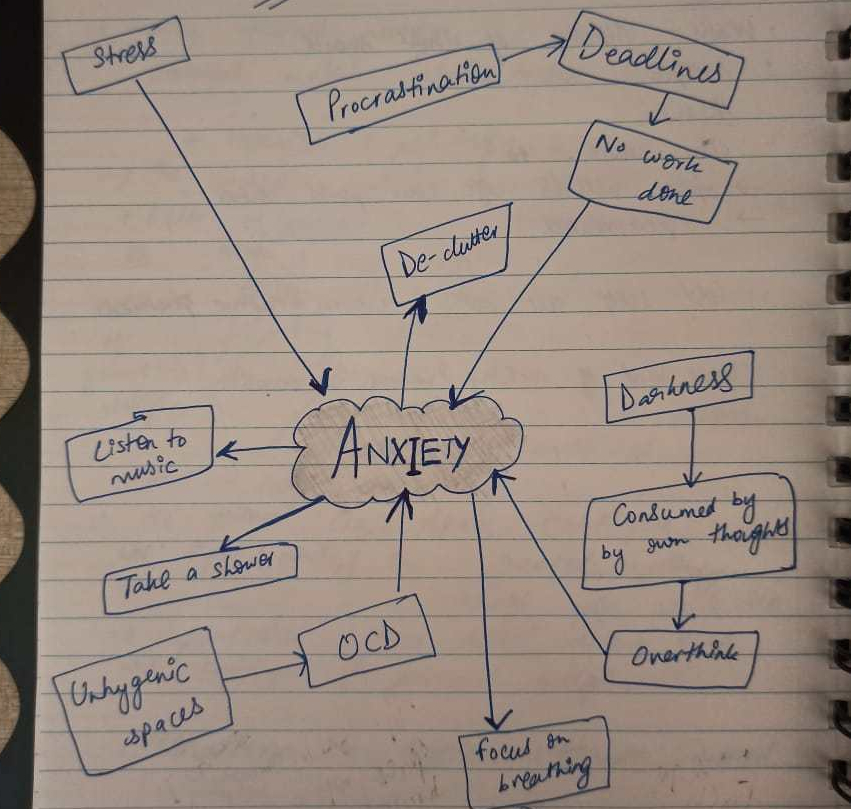 Stress
Procrastination
Deadlines
No work
done
De-clutter
Darkness
Listen to
music
ANXIETY
Consumed by
by own thoughts
Take a shower
OCD
Overthink
Unhygenic
spaces
focus on
breathing